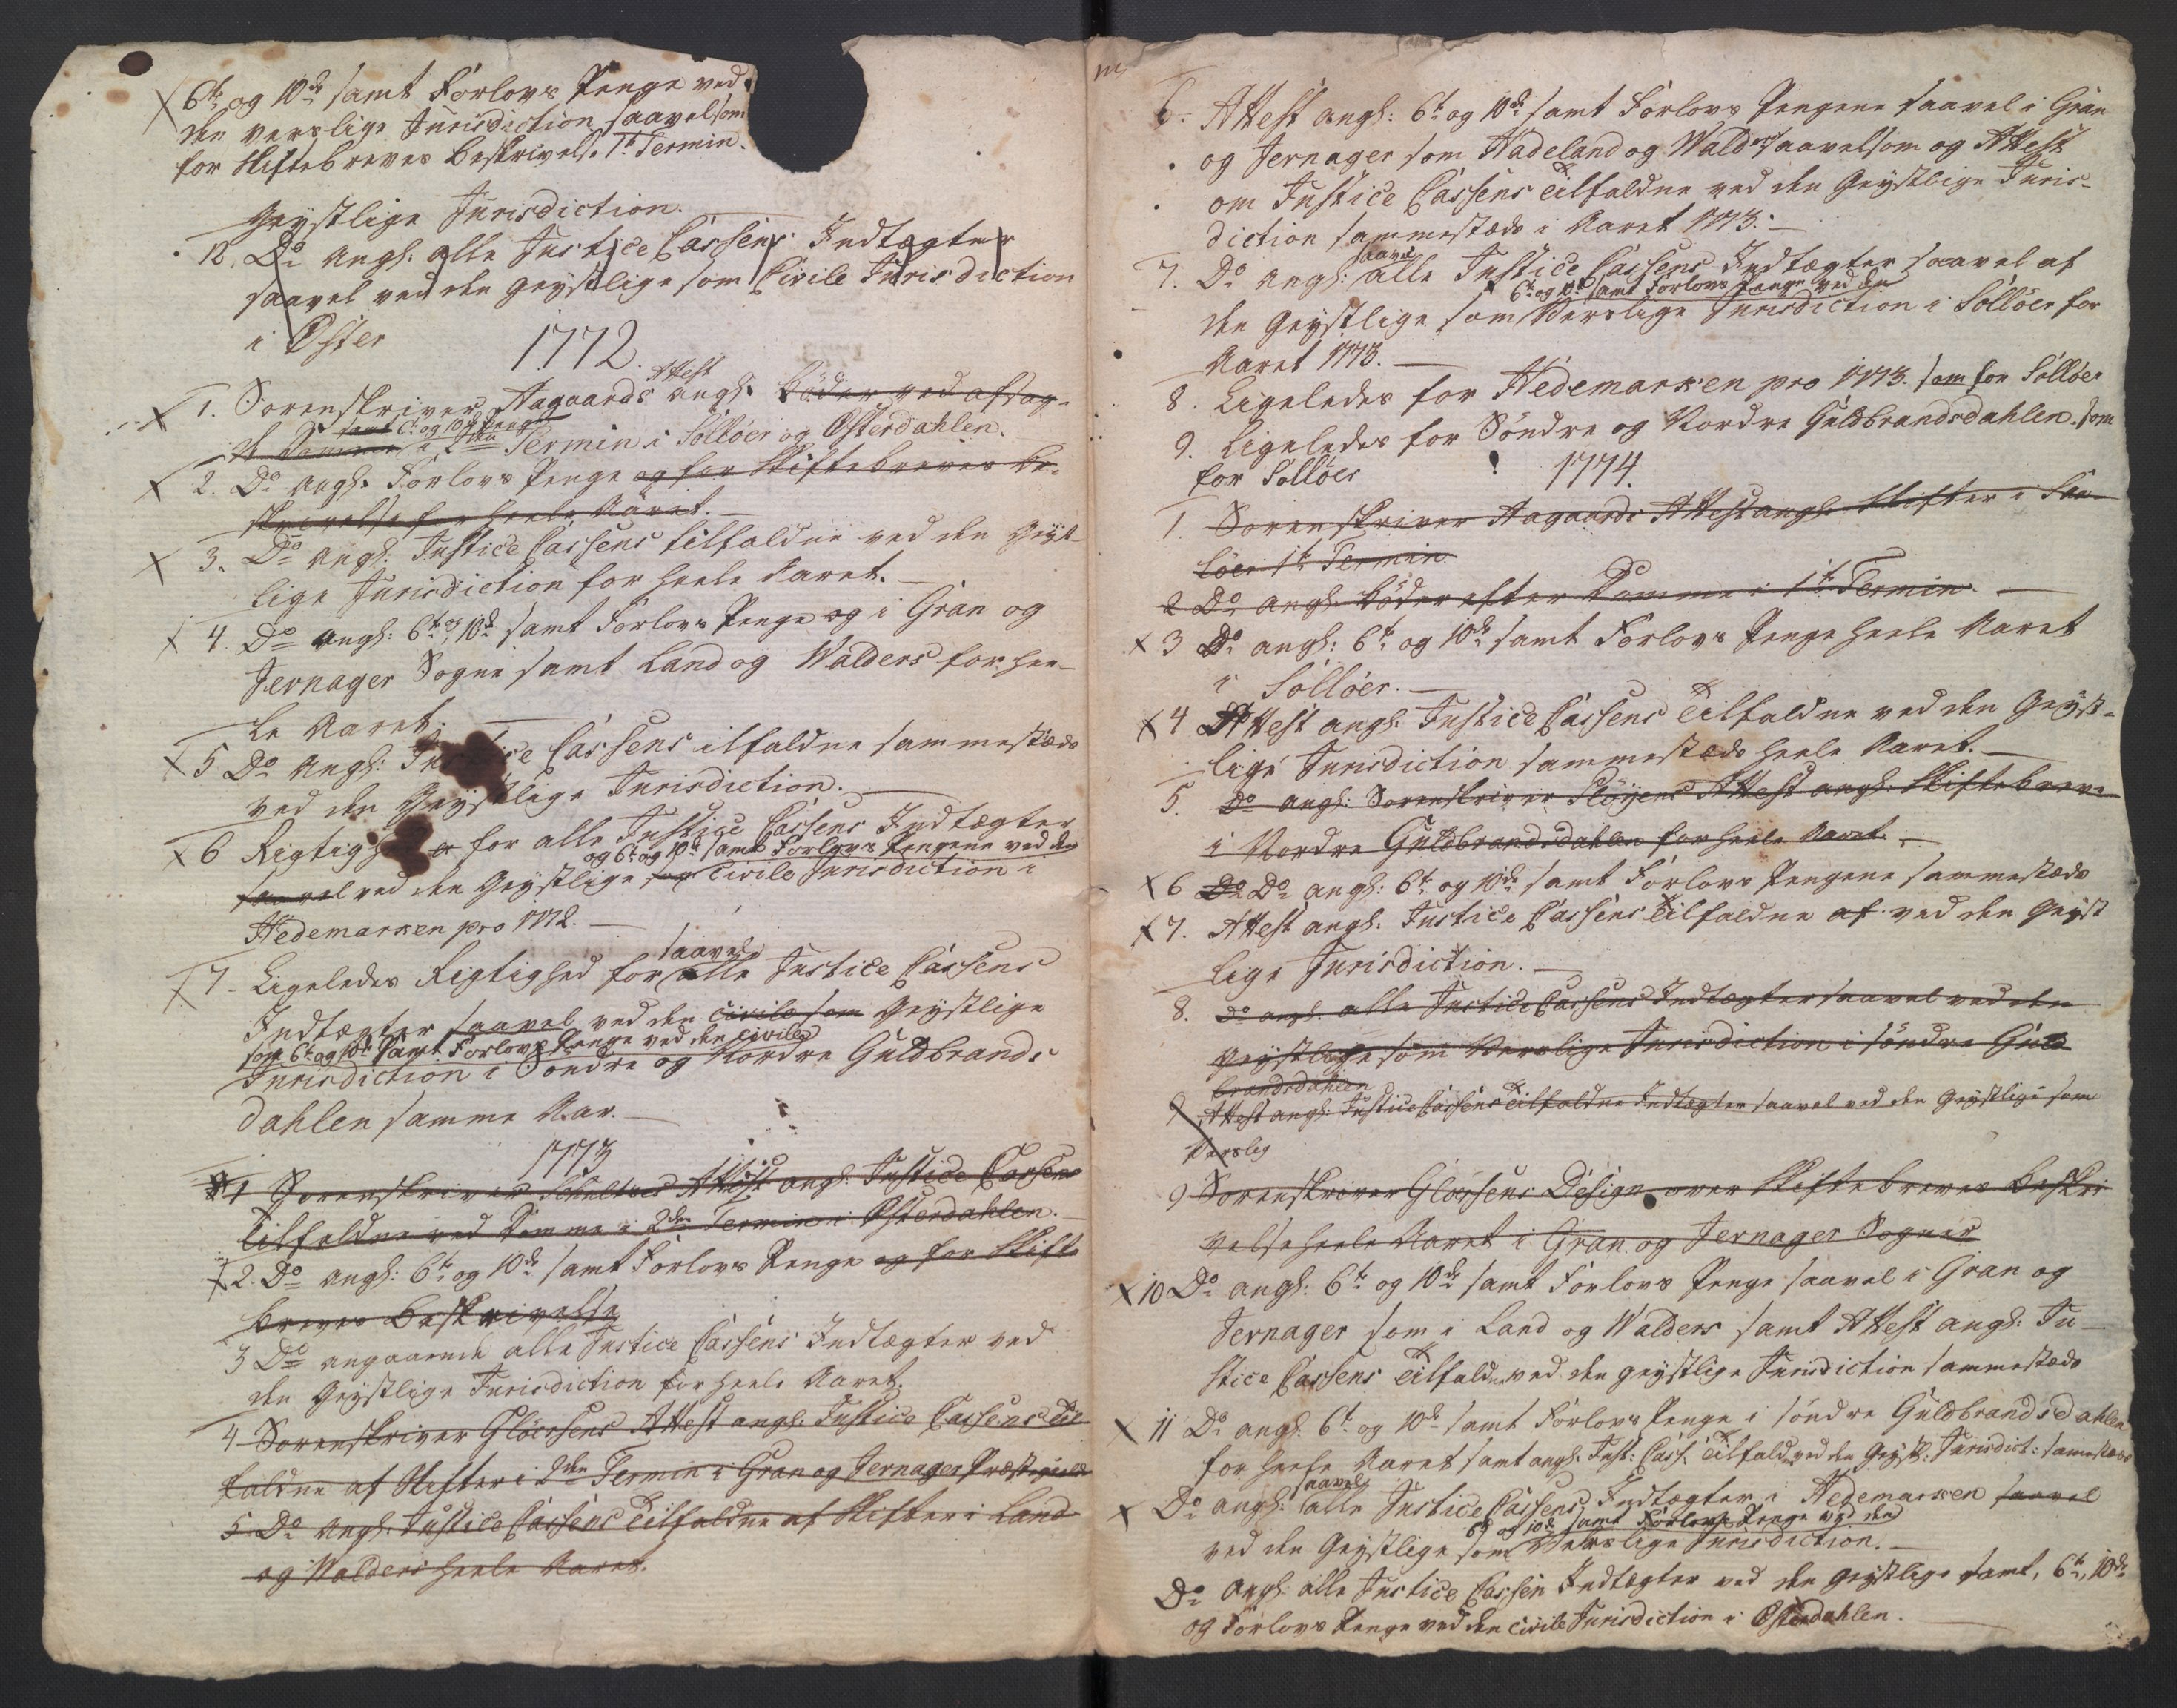 6te og 10de samt Forlovs Penge ved
den verslige Jurisdiction saavelsom
for Skiftebreves Beskrivels. 1te Termin.
Geystlige Jurisdiction.
12. Do angl. alle Justice Cassens Indtægter
saavel ved den geystlige som Civile Jurisdiction
i Øster
1772.
Attest
1. Sorenskriver Aagaards angl. Bøder ved afsag-
samt 6te og 10de Penge
te Domme i 2den Termin i Solløer og Østerdahlen.
2. Do angl. Forlovs Penge og for Skiftebreves be-
skrivelse for heele Aaret.
3. Do angl. Justice Cassens tilfaldne ved den Geyst-
lige Jurisdiction for heele Aaret.
4. Do angl: 6te og 10de samt Forlovs Penge og i Gran og
Jevnager Sogne samt Land og Walders for hee-
le Aaret.
5 Do angl: Justice Cassens ilfaldne sammestæds
ved den Geystlige Jurisdiction.
6 Rigtighed for alle Justice Cassens Indtægter
og 6te og 10de samt Forlovs Pengene ved den
saavel ved den Geystlige som Civile Jurisdiction i
Hedemarken pro 1772.
saavel
7. Ligeledes Rigtighed for alle Justice Cassens
Indtægter saavel ved den civile som Geystlige
som 6te og 10de samt Forlovs Penge ved den civile
Jurisdiction i Søndre og Nordre Guldbrands
dahlen samme Aar.
1773
1 Sorenskriver Schultzes Attest angl. Justice Cassens
tilfaldne ved Domme i 2den Termin i Østerdahlen.
2. Do angl: 6te og 10de samt Forlovs Penge og for Skifte
breves Beskrivelse
3 Do angaaende alle Justice Cassens Indtægter ved
den Geystlige Jurisdiction for heele Aaret.
4 Sorenskriver Gløersens Attest angl. Justice Cassens til
faldne af Skifter i 2den Termin i Gran og Jevnager Præstegield
5 Do angl. Justice Cassens Tilfaldne af Skifter i Land
og Walders heele Aaret.
6. Attest angl: 6te og 10de samt Forlovs Pengene saavel i Gran
og Jevnager som Hadeland og Walders saavelsom og Attest
om Justice Cassens Tilfaldne ved den Geystlige Juris-
diction sammestæds i Aaret 1773.
saavel
7. Do angl: alle Justice Cassens Indtægter saavel af
6te og 10de samt Forlovs Penge ved den
den Geystlige som Verslige Jurisdiction i Solløer for
Aaret 1773.
8. Ligeledes for Hedemarken pro 1773. som for Solløer
9. Ligeledes for Søndre og Nordre Guldbrandsdahlen. som
for Solløer
1774.
1. Sorenskriver Aagaards Attest angl. Skifter i So
løer 1te Termin
2 Do angl. Bøder efter Domme i 1te Termin.
3 Do angl: 6te og 10de samt Forlovs Penge heele Aaret
i Solløer.
4 Attest angl. Justice Cassens Tilfaldne ved den Geyst-
lige Jurisdiction sammestæds heele Aaret.
5. Do angl: Sorenskriver Pløyens Attest angl. Skiftebreve
i Nordre Guldbrandsdahlen for heele Aaret.
6 Do Do angl: 6te og 10de samt Forlovs Pengene sammestæds
7. Attest angl. Justice Cassens Tilfaldne af ved den Geyst
lige Jurisdiction.
8. Do angl. alle Justice Cassens Indtægter saavel ved den
Geystlige som Verslige Jurisdiction i søndre Guld
brandsdahlen
9 Attest angl: Justice Cassens Tilfaldne Indtægter saavel ved den Geystlige som
Verslig
9 Sorenskriver Gløersens Design. over Skiftebreves Beskri
velse heele Aaret i Gran og Jevnager Sogner
10 Do angl: 6te og 10de samt Forlovs Penge saavel i Gran og
Jevnager som i Land og Walders samt Attest angl: Ju-
stice Cassens Tilfaldne ved den geystlige Jurisdiction sammestæds
11 Do angl. 6te og 10de samt Forlovs Penge i søndre Guldbrandsdahlen
for heele Aaret samt angl. Just: Cass. Tilfald. ved den Geystl: Jurisdict: samestæds
saavel
Do angl: alle Justice Cassens Indtægter i Hedemarken saavel
6te og 10de samt Forlovs Penge ved den
ved den Geystlige som Verslige Jurisdiction.
Do angl. alle Justice Cassen Indtægter ved den geystlige samt, 6te, 10de
og Forlovs Penge ved den civile Jurisdiction i Østerdahlen.